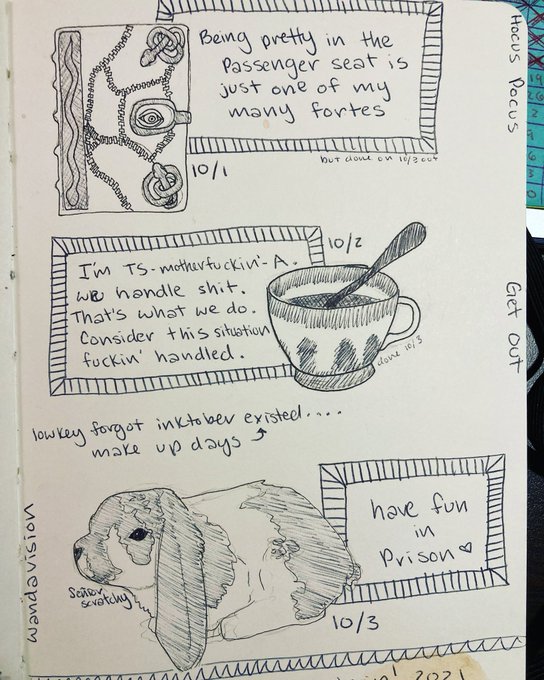 Being pretty in the
passenger seat is
just one of my
many fortes
but done on 10/3
10/1
Hocus Pocus
10/2
I'm TS-motherfuckin'-A.
we handle shit.
That's what we do.
Consider this situation
fuckin' handled.
done 10/3
Get Out
lowkey forgot inktober existed....
make up days
have fun
in
Prison
Señor
scratchy
10/3
Wandavision
2021